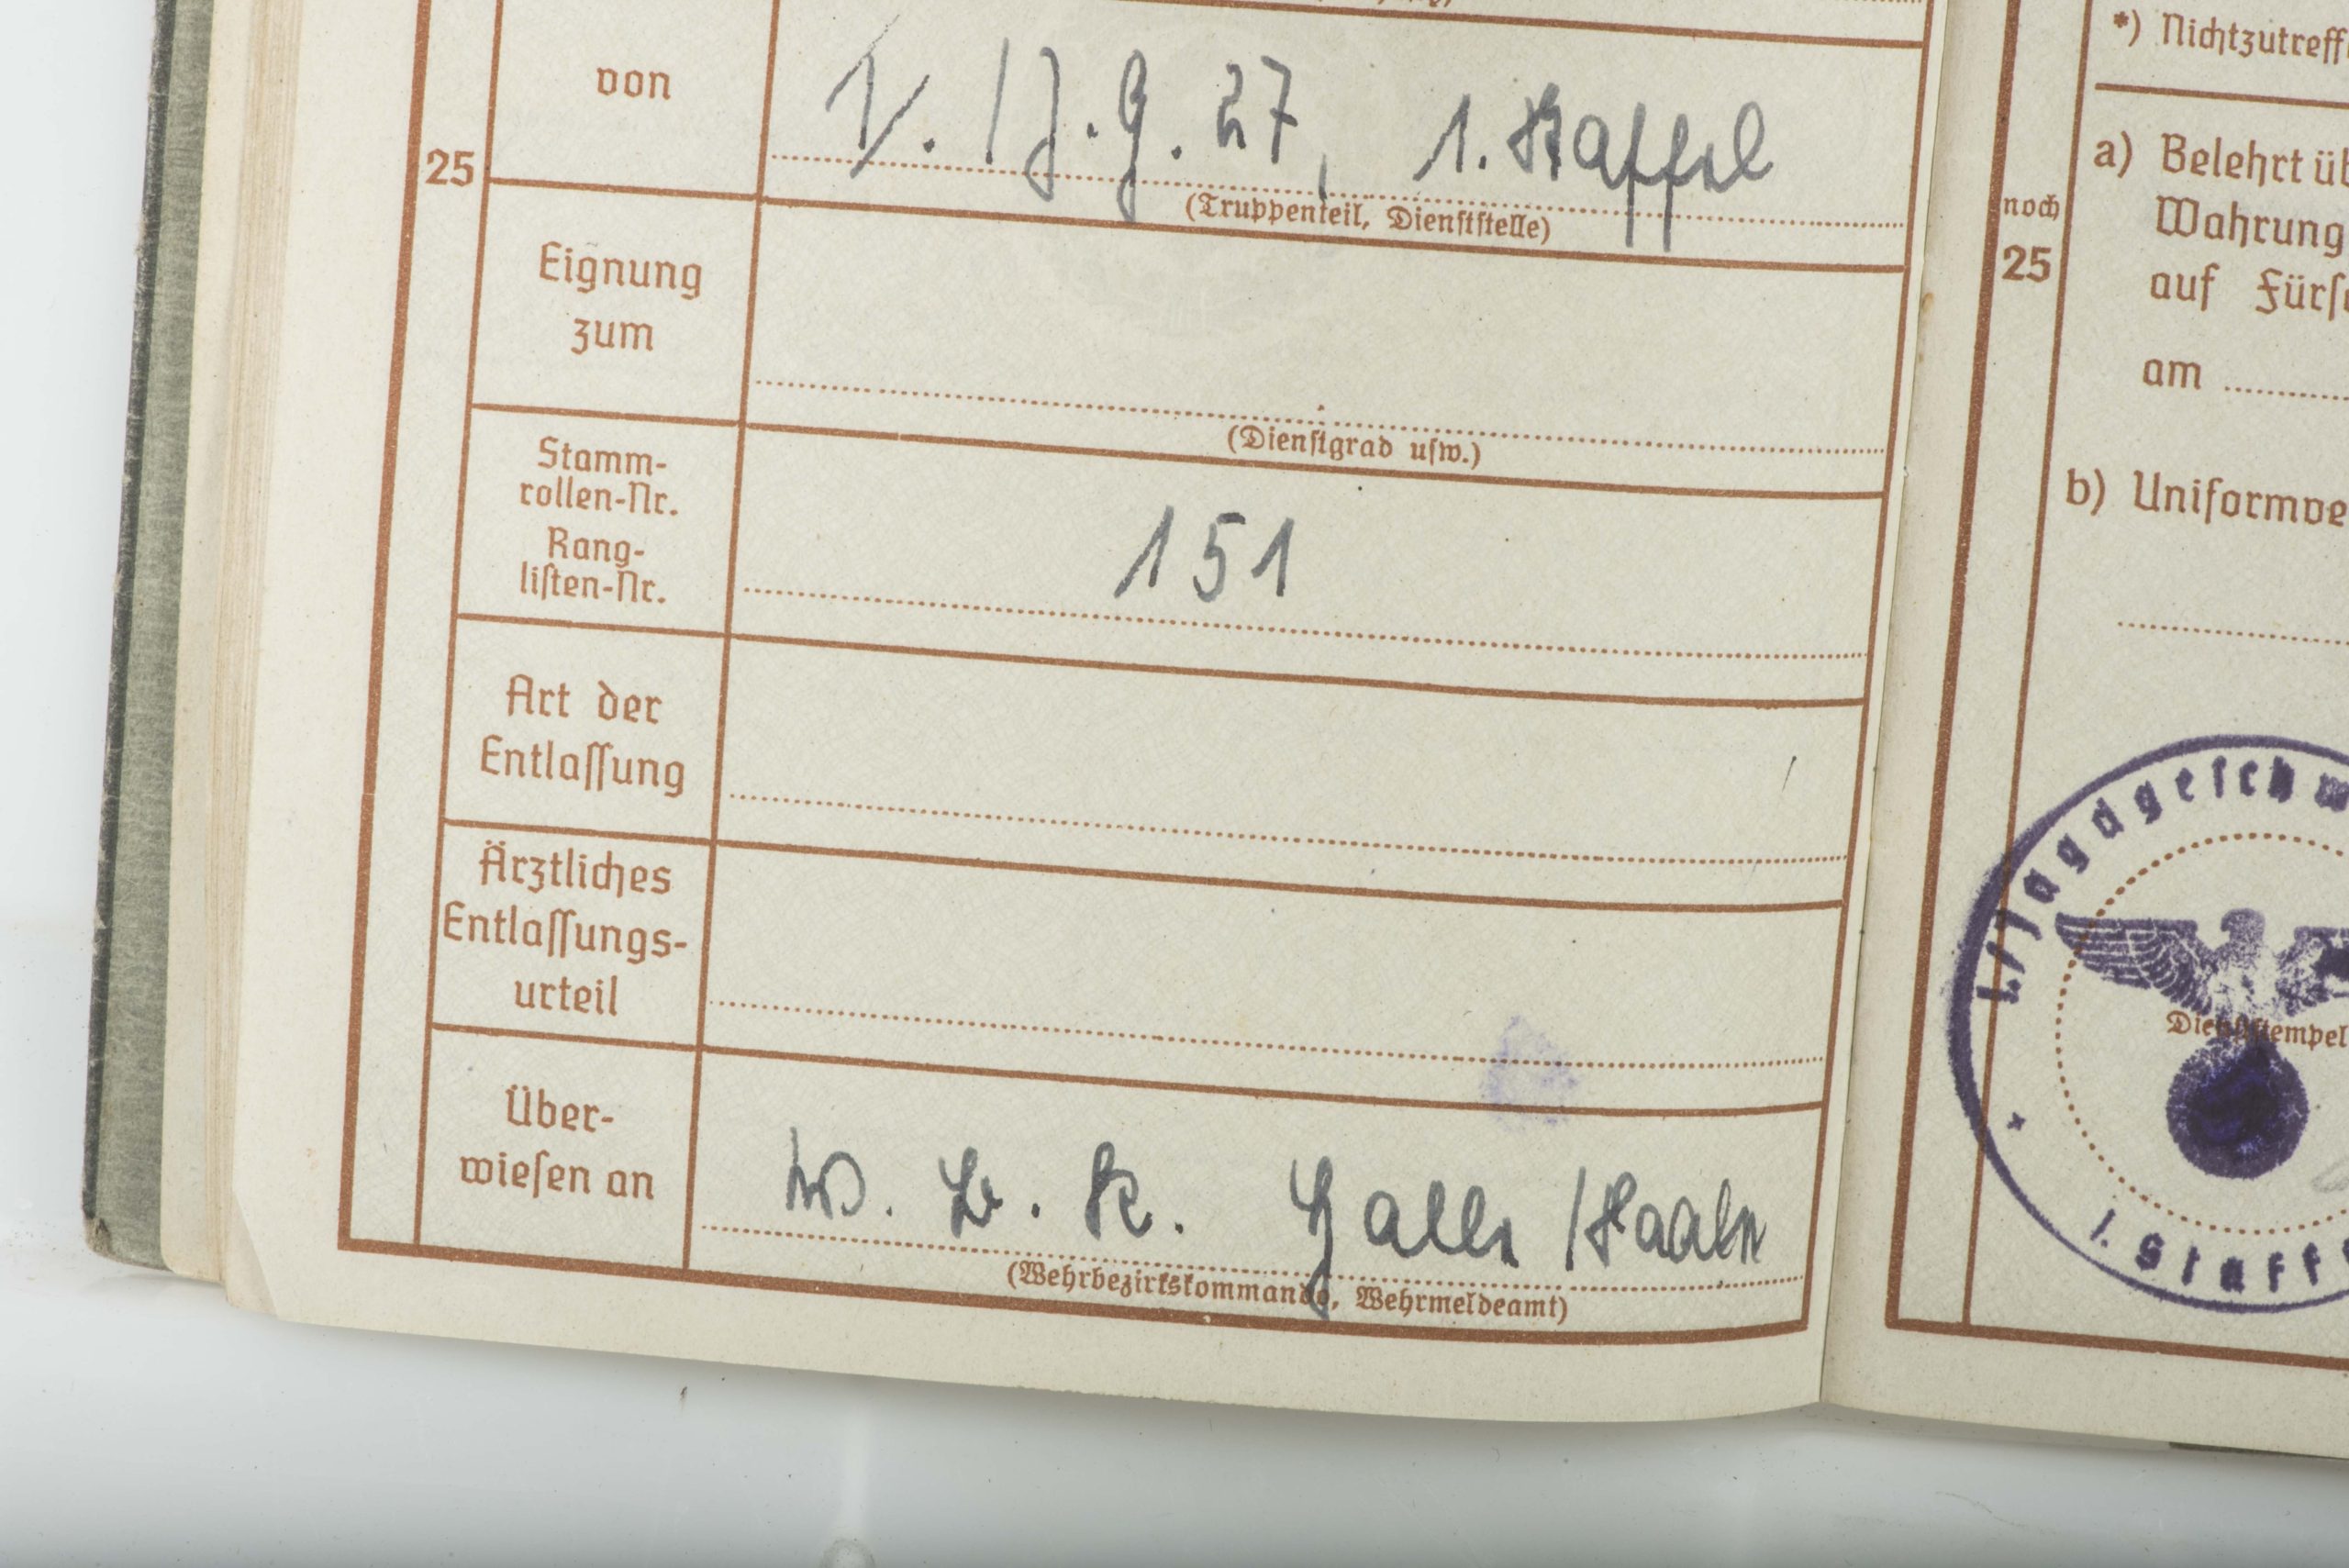 von
I. / J. G. 27, 1. Staffel
(Truppenteil, Dienststelle)
25
Eignung
zum
(Dienstgrad usw.)
Stamm-
rollen-Nr.
Rang-
listen-Nr.
151
Art der
Entlassung
Ärztliches
Entlassungs-
urteil
Über-
wiesen an
W. B. K. Halle / Saale
(Wehrbezirkskommando, Wehrmeldeamt)
*) Nichtzutreff
a) Belehrt üb
Wahrung
noch
25
auf Fürs
am
b) Uniformve
I./Jagdgeschw
Dienststempel
1. Staff